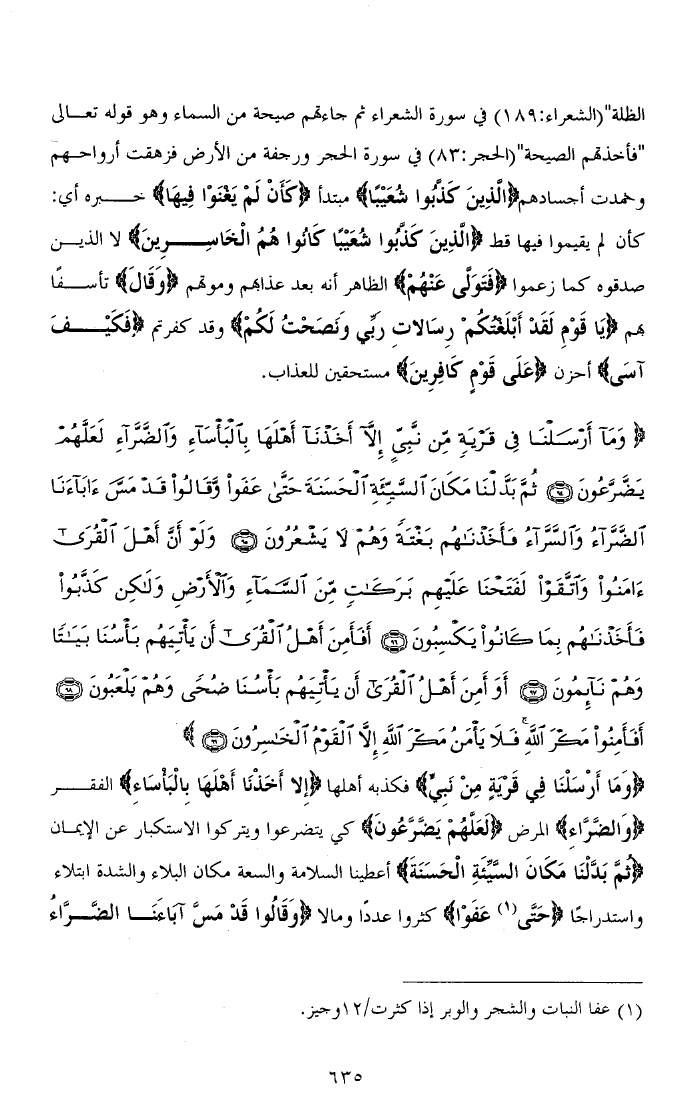 الظلة"(الشعراء:١٨٩) في سورة الشعراء ثم جاءتهم صيحة من السماء وهو قوله تعـــالى
"فأخذتهم الصيحة"(الحجر:٨٣) في سورة الحجر ورجفة من الأرض فزهقت أرواحـــهم
وخمدت أجسادهم﴿الَّذِينَ كَذَّبُوا شُعَيْبًا﴾ مبتدأ ﴿كَأَنْ لَمْ يَغْنَوْا فِيهَا﴾ خـــبره أي:
كأن لم يقيموا فيها قط ﴿الَّذِينَ كَذَّبُوا شُعَيْبًا كَانُوا هُمُ الْخَاسِـــرِينَ﴾ لا الذيـــن
صدقوه كما زعموا ﴿فَتَوَلَّى عَنْهُمْ﴾ الظاهر أنه بعد عذابهم وموتهم ﴿وَقَالَ﴾ تأســـفًا
بهم ﴿يَا قَوْمِ لَقَدْ أَبْلَغْتُكُمْ رِسَالاتِ رَبِّي وَنَصَحْتُ لَكُمْ﴾ وقد كفرتم ﴿فَكَيْـــفَ
آسَى﴾ أحزن ﴿عَلَى قَوْمٍ كَافِرِينَ﴾ مستحقين للعذاب.
﴿ وَمَآ أَرْسَلْنَا فِى قَرْيَةٍ مِّن نَّبِىٍّ إِلَّآ أَخَذْنَآ أَهْلَهَا بِٱلْبَأْسَآءِ وَٱلضَّرَّآءِ لَعَلَّهُمْ
يَضَّرَّعُونَ ۝٩٤ ثُمَّ بَدَّلْنَا مَكَانَ ٱلسَّيِّئَةِ ٱلْحَسَنَةَ حَتَّىٰ عَفَوا۟ وَّقَالُوا۟ قَدْ مَسَّ ءَابَآءَنَا
ٱلضَّرَّآءُ وَٱلسَّرَّآءُ فَأَخَذْنَـٰهُم بَغْتَةً وَهُمْ لَا يَشْعُرُونَ ۝٩٥ وَلَوْ أَنَّ أَهْلَ ٱلْقُرَىٰٓ
ءَامَنُوا۟ وَٱتَّقَوْا۟ لَفَتَحْنَا عَلَيْهِم بَرَكَـٰتٍ مِّنَ ٱلسَّمَآءِ وَٱلْأَرْضِ وَلَـٰكِن كَذَّبُوا۟
فَأَخَذْنَـٰهُم بِمَا كَانُوا۟ يَكْسِبُونَ ۝٩٦ أَفَأَمِنَ أَهْلُ ٱلْقُرَىٰٓ أَن يَأْتِيَهُم بَأْسُنَا بَيَـٰتًا
وَهُمْ نَآئِمُونَ ۝٩٧ أَوَ أَمِنَ أَهْلُ ٱلْقُرَىٰٓ أَن يَأْتِيَهُم بَأْسُنَا ضُحًى وَهُمْ يَلْعَبُونَ ۝٩٨
أَفَأَمِنُوا۟ مَكْرَ ٱللَّهِ ۚ فَلَا يَأْمَنُ مَكْرَ ٱللَّهِ إِلَّا ٱلْقَوْمُ ٱلْخَـٰسِرُونَ ۝٩٩ ﴾
﴿وَمَا أَرْسَلْنَا فِي قَرْيَةٍ مِنْ نَبِيٍّ﴾ فكذبه أهلها ﴿إِلا أَخَذْنَا أَهْلَهَا بِالْبَأْسَاءِ﴾ الفقـــر
﴿وَالضَّرَّاءِ﴾ المرض ﴿لَعَلَّهُمْ يَضَّرَّعُونَ﴾ كي يتضرعوا ويتركوا الاستكبار عن الإيمـان
﴿ثُمَّ بَدَّلْنَا مَكَانَ السَّيِّئَةِ الْحَسَنَةَ﴾ أعطينا السلامة والسعة مكان البلاء والشدة ابتلاء
واستدراجًا ﴿حَتَّى(١) عَفَوْا﴾ كثروا عددًا ومالا ﴿وَقَالُوا قَدْ مَسَّ آبَاءَنَـــا الضَّـــرَّاءُ
(١) عفا النبات والشجر والوبر إذا كثرت/١٢وجيز.
٦٣٥